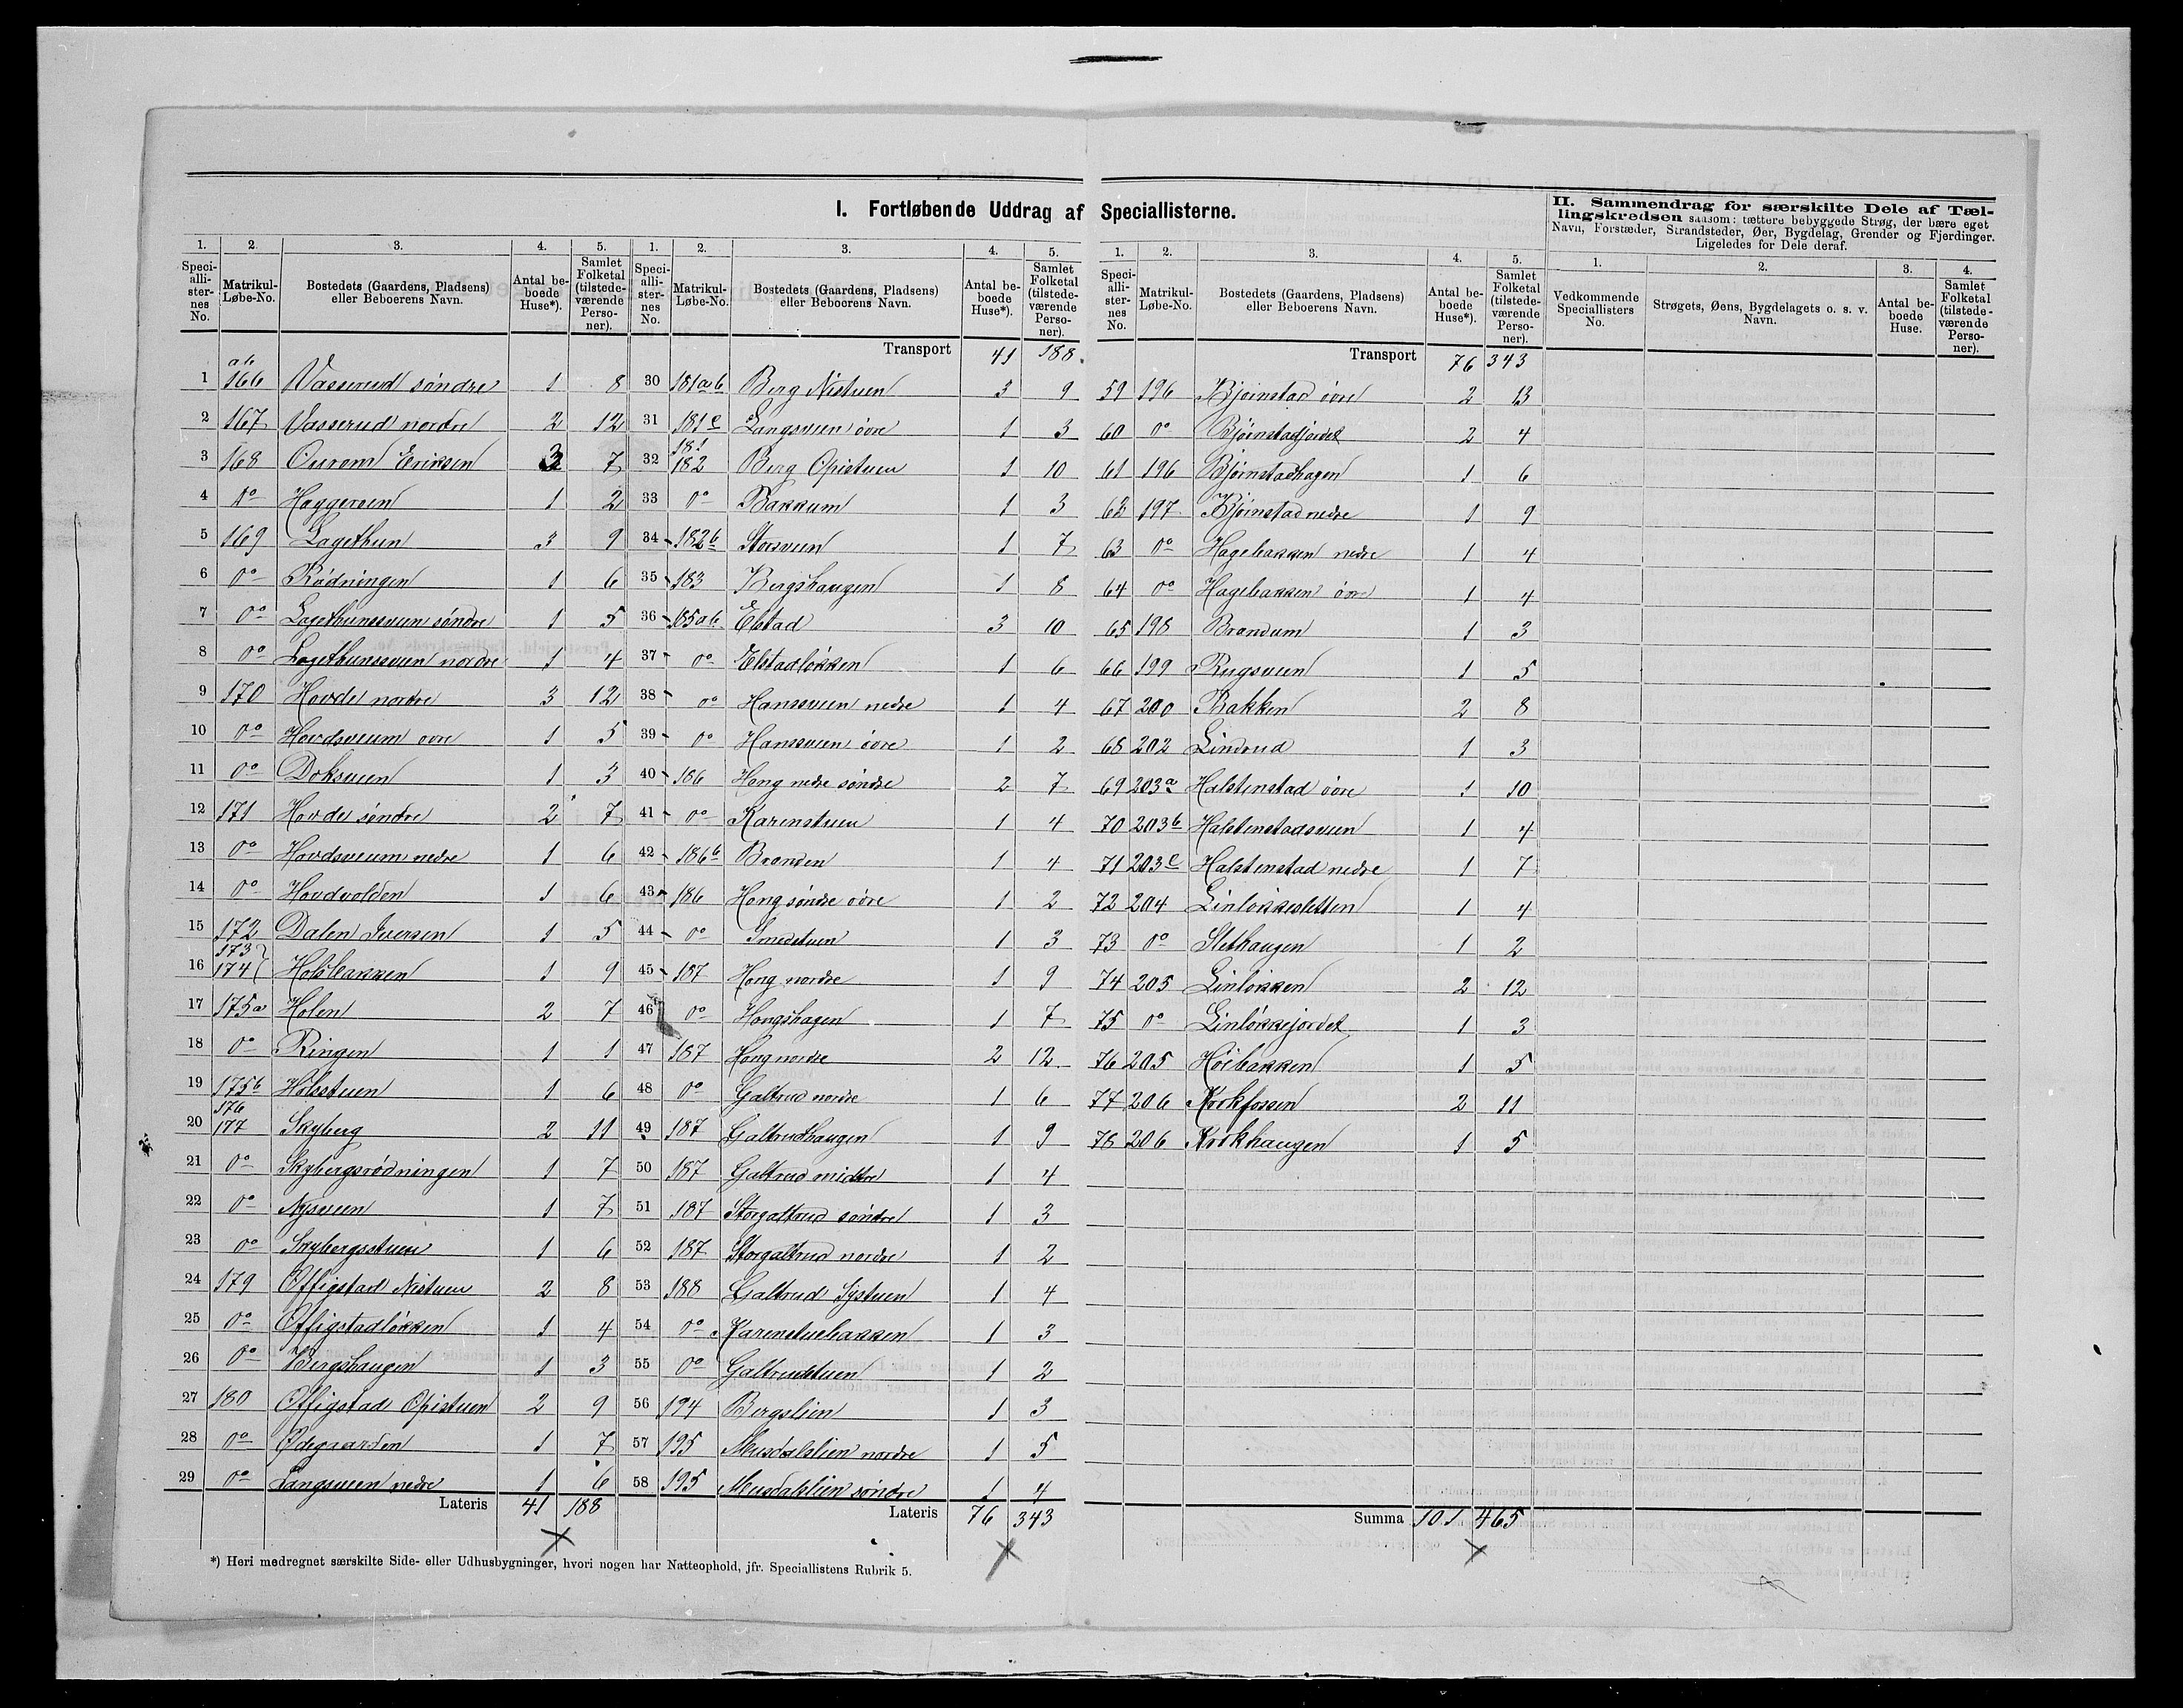 I. Fortløbende Uddrag af Speciallisterne.
II. Sammendrag for særskilte Dele af Tæl-
lingskredsen saasom: tættere bebyggede Strøg, der bære eget
Navn, Forstæder, Strandsteder, Øer, Bygdelag, Grender og Fjerdinger.
Ligeledes for Dele deraf.
1. 2. 3. 4. 5.
Speci-alli-ster-nes No. Matrikul-Løbe-No. Bostedets (Gaardens, Pladsens) eller Beboerens Navn. Antal be-boede Huse*). Samlet Folketal (tilstede-værende Perso-ner).
1 166 ab Vasserud søndre 1 8
2 167 Vasserud nordre 2 12
3 168 Ourom Eriksen 3 7
4 do Haggeroen 1 2
5 169 Lagethun 3 9
6 do Rødningen 1 6
7 do Lagethunssveen søndre 1 5
8 do Lagethunssveen nordre 1 4
9 170 Hovde nordre 3 12
10 do Hovdsveum øvre 1 5
11 do Doksveen 1 3
12 171 Hovde søndre 2 7
13 do Hovdsveum nedre 1 6
14 do Hovdvolden 1 6
15 172 Dalen Iversen 1 5
16 173 174 Holsbakken 1 9
17 175a Holen 2 7
18 do Ringen 1 1
19 175b Holsstuen 1 6
20 176 177 Skyberg 2 11
21 do Skybergsrødningen 1 7
22 do Nysveen 1 7
23 do Skybergsstuen 1 6
24 179 Offigstad Nistuen 2 8
25 do Offigstadløkken 1 4
26 do Bergshaugen 1 3
27 180 Offigstad Opistuen 2 9
28 do Ødegaarden 1 7
29 do Langsveen nedre 1 6
Lateris 41 188
1. 2. 3. 4. 5.
Speci-alli-ster-nes No. Matrikul-Løbe-No. Bostedets (Gaardens, Pladsens) eller Beboerens Navn. Antal be-boede Huse*). Samlet Folketal (tilstede-værende Perso-ner).
Transport 41 188
30 181ab Berg Nistuen 3 9
31 181c Langsveen øvre 1 3
32 181 182 Berg Opistuen 1 10
33 do Bakkum 1 3
34 182b Storsveen 1 7
35 183 Bergshaugen 1 8
36 185ab Elstad 3 10
37 do Elstadløkken 1 6
38 do Hanssveen nedre 1 4
39 do Hanssveen øvre 1 2
40 186 Hong nedre søndre 2 7
41 do Karenstuen 1 4
42 186b Branden 1 4
43 186 Hong søndre øvre 1 2
44 do Smedstuen 1 3
45 187 Hong nordre 1 9
46 do Hongshagen 1 7
47 187 Hong nordre 2 12
48 do Galtrud nordre 1 6
49 187 Galtrudhaugen 1 9
50 187 Galtrud midtre 1 4
51 187 Storgaltrud søndre 1 3
52 187 Storgaltrud nordre 1 2
53 188 Galtrud Systuen 1 4
54 do Karenstuebakken 1 3
55 do Galtrudstuen 1 2
56 194 Bergslien 1 3
57 195 Musdalslien nordre 1 5
58 195 Musdalslien søndre 1 4
Lateris 76 343
1. 2. 3. 4. 5.
Speci-alli-ster-nes No. Matrikul-Løbe-No. Bostedets (Gaardens, Pladsens) eller Beboerens Navn. Antal be-boede Huse*). Samlet Folketal (tilstede-værende Perso-ner).
Transport 76 343
59 196 Bjørnstad øvre 2 13
60 do Bjørnstadjordet 2 4
61 196 Bjørnstadhagen 1 6
62 197 Bjørnstad nedre 1 9
63 do Hagebakken nedre 1 4
64 do Hagebakken øvre 1 4
65 198 Brandum 1 3
66 199 Rugsveen 1 5
67 200 Bakken 2 8
68 202 Lindrud 1 3
69 203a Halstenstad øvre 1 10
70 203b Halstenstadsveen 1 4
71 203c Halstenstad nedre 1 7
72 204 Linløkkesletten 1 4
73 do Slethaugen 1 2
74 205 Linløkken 2 12
75 do Linløkkejordet 1 3
76 205 Høibakken 1 5
77 206 Krokfossen 2 11
78 206 Krokhaugen 1 5
Summa 101 465
1. 2. 3. 4.
Vedkommende Speciallisters No. Strøgets, Øens, Bygdelagets o. s. v. Navn. Antal be-boede Huse. Samlet Folketal (tilstede-værende Perso-ner).
*) Heri medregnet særskilte Side- eller Udhusbygninger, hvori nogen har Natteophold, jfr. Speciallistens Rubrik 5.